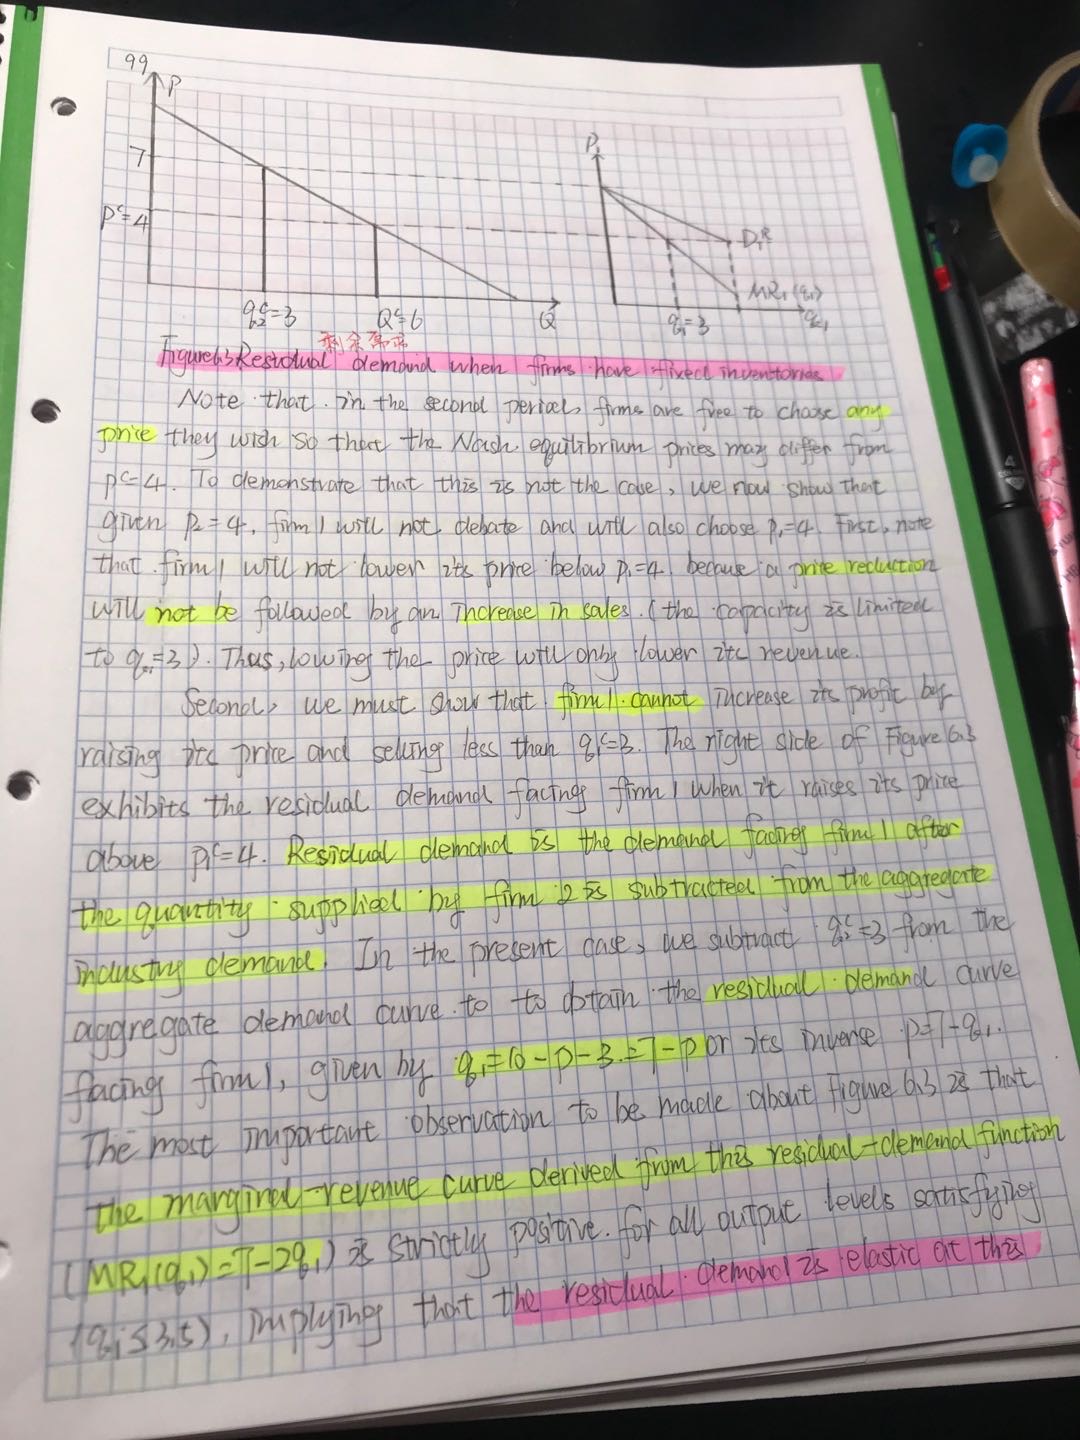 99
P
7
pᶜ=4
q₂ᶜ=3
Qᶜ=6
Q
P₁
D₁R
MR₁(q₁)
q₁=3
q₁
剩余需求
Figure6.3 Residual demand when firms have fixed inventories
Note that in the second period, firms are free to choose any
price they wish so that the Nash equilibrium prices may differ from
pᶜ=4. To demonstrate that this is not the case, we now show that
given p₂=4, firm 1 will not debate and will also choose p₁=4. First, note
that firm 1 will not lower its price below p₁=4, because a price reduction
will not be followed by an increase in sales. (the capacity is limited
to q₁=3). Thus, lowing the price will only lower its revenue.
Second, we must show that firm 1 cannot increase its profit by
raising its price and selling less than q₁ᶜ=3. The right side of Figure 6.3
exhibits the residual demand facing firm 1 when it raises its price
above p₁ᶜ=4. Residual demand is the demand facing firm 1 after
the quantity supplied by firm 2 is subtracted from the aggregate
industry demand. In the present case, we subtract q₂ᶜ=3 from the
aggregate demand curve to to obtain the residual demand curve
facing firm 1, given by q₁=10-p-3=7-p or its inverse p=7-q₁.
The most important observation to be made about Figure 6.3 is that
the marginal-revenue curve derived from this residual-demand function
(MR₁(q₁)=7-2q₁) is strictly positive for all output levels satisfying
(q₁≤3.5), implying that the residual demand is elastic at this